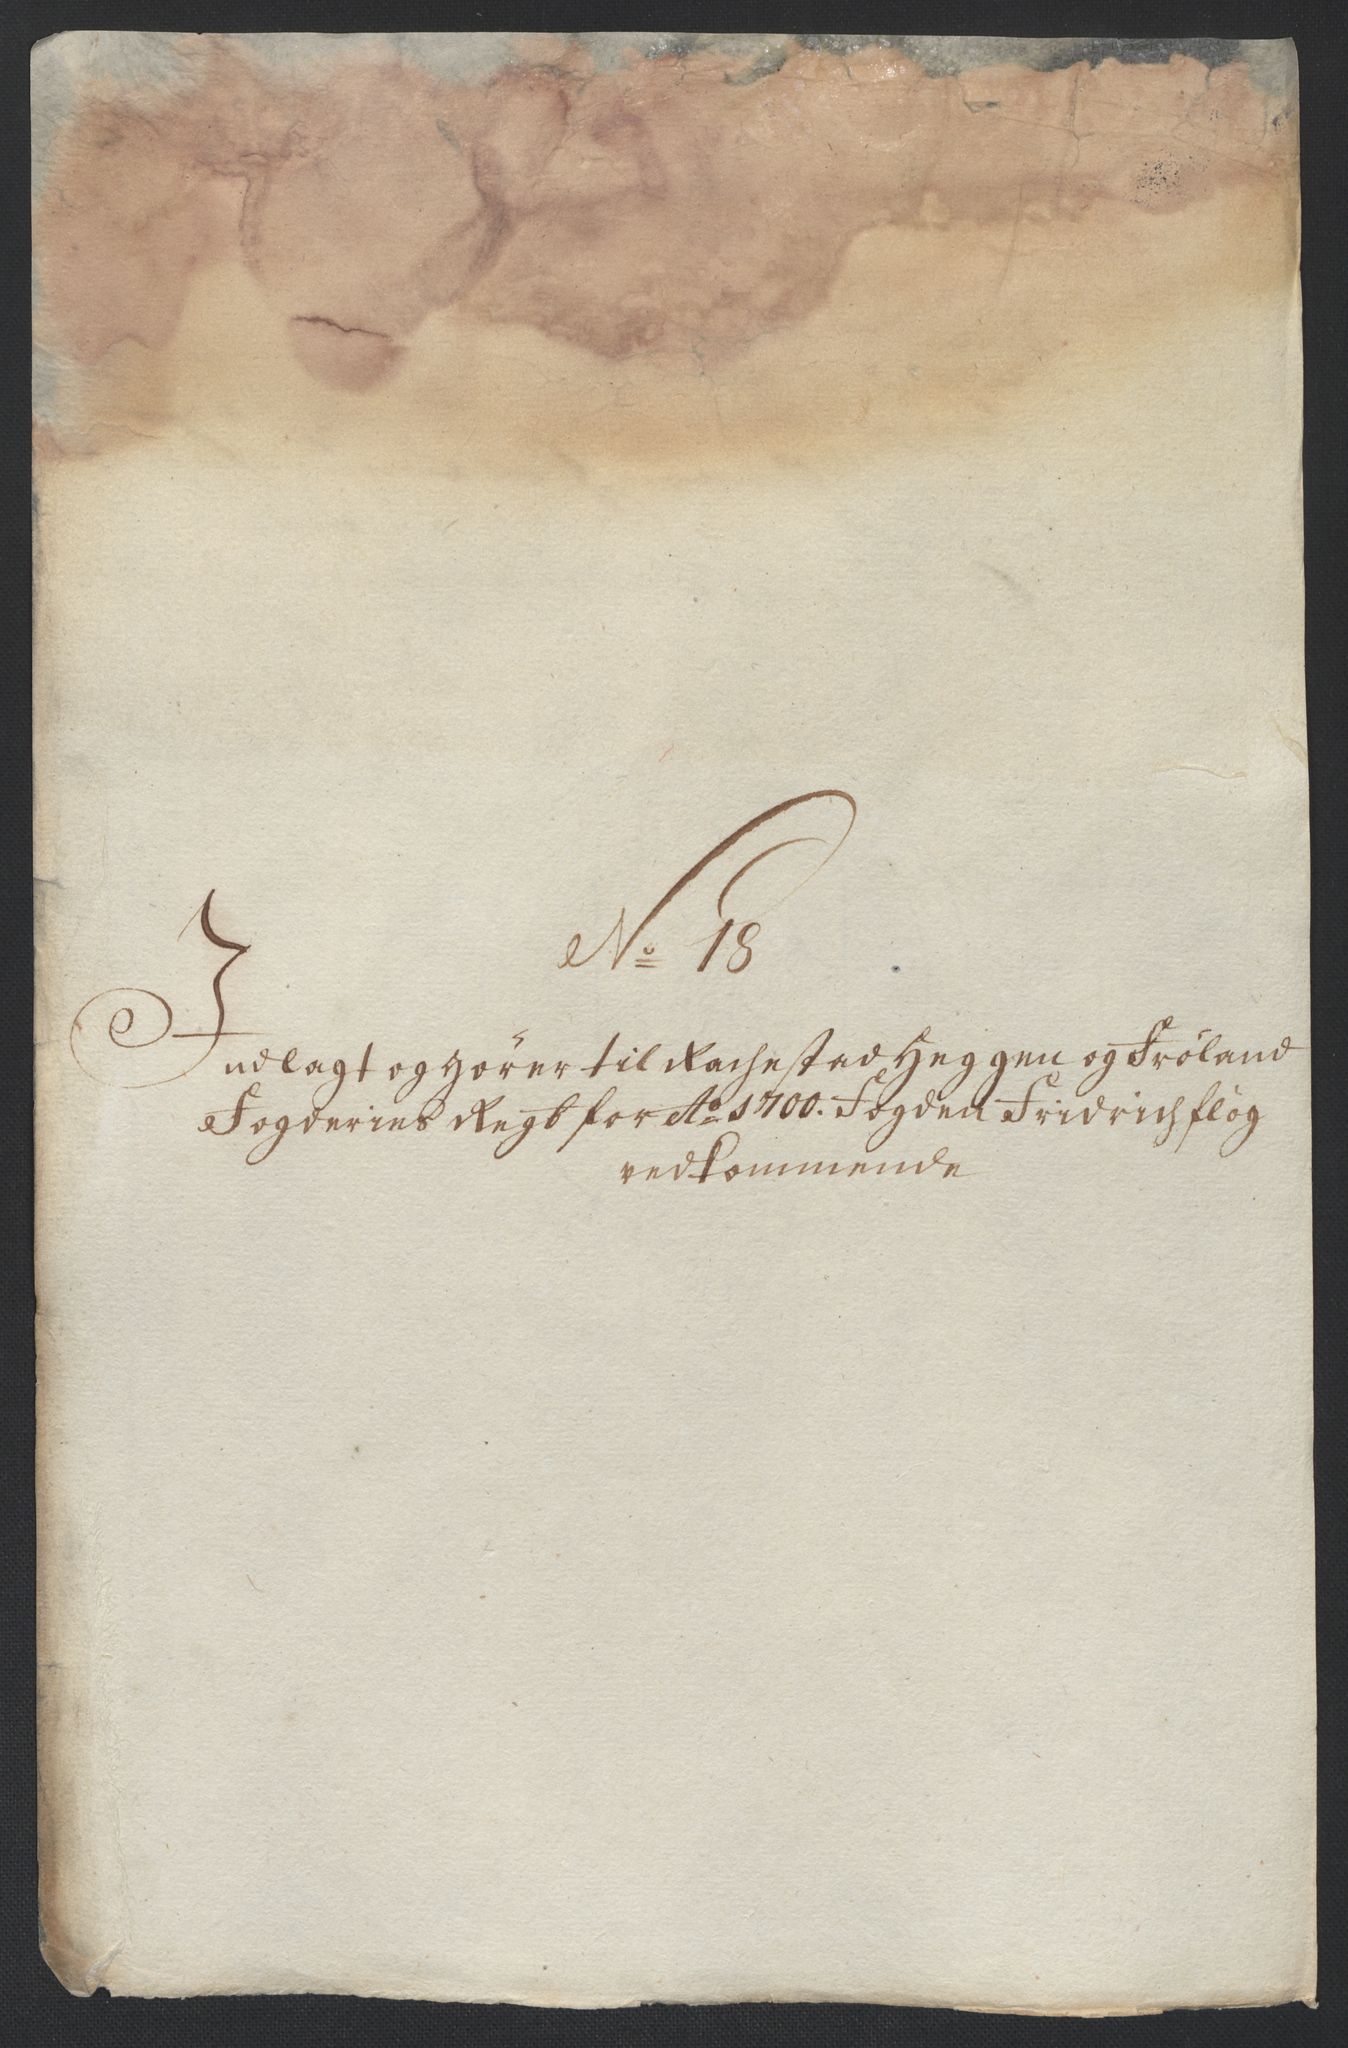 No 18
Indlagt og hörer til Rachestad Heggen og Fröland
Fogderies Regb for Ao 1700. Fogden Fridrich flög
vedkommende